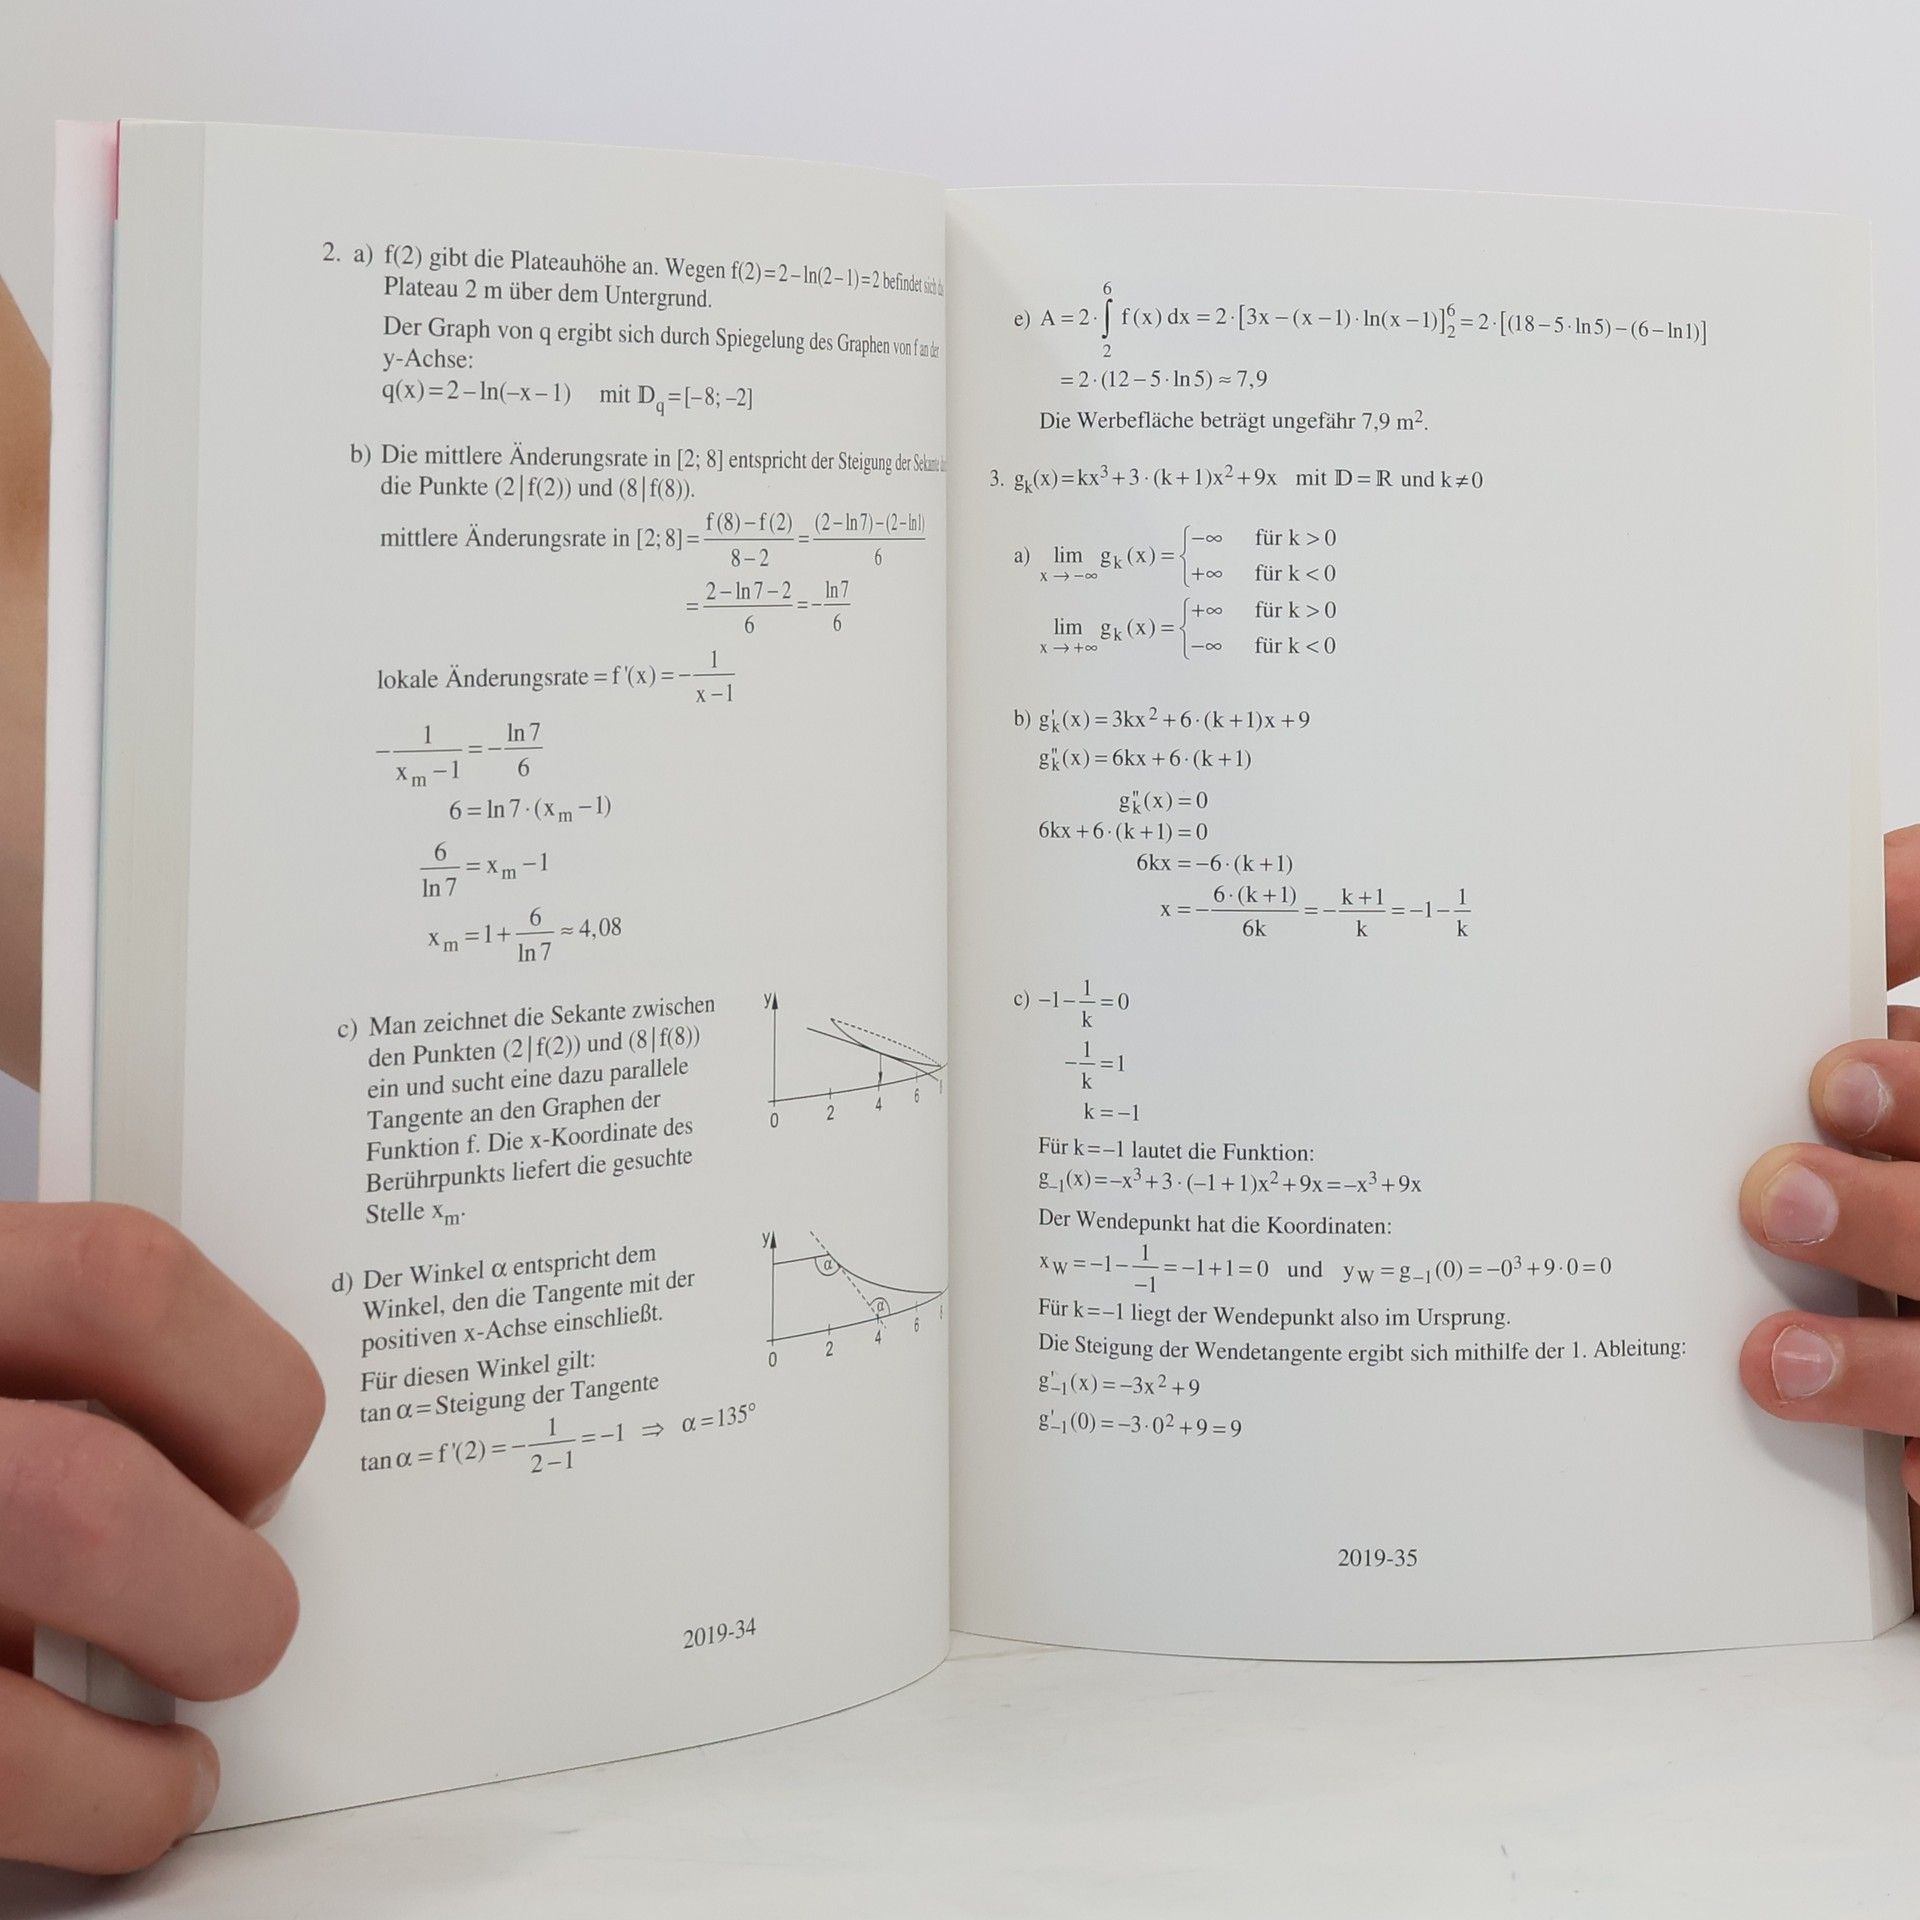 2. a) f(2) gibt die Plateauhöhe an. Wegen f(2)=2–ln(2–1)=2 befindet sich
Plateau 2 m über dem Untergrund.
Der Graph von q ergibt sich durch Spiegelung des Graphen von f an der
y-Achse:
q(x)=2–ln(–x–1) mit 𝔻_q=[–8; –2]
b) Die mittlere Änderungsrate in [2; 8] entspricht der Steigung der Sekante
die Punkte (2|f(2)) und (8|f(8)).
mittlere Änderungsrate in [2; 8] = (f(8)–f(2))/(8–2) = ((2–ln7)–(2–ln1))/6
= (2–ln7–2)/6 = –ln7/6
lokale Änderungsrate = f'(x) = –1/(x–1)
–1/(x_m –1) = –ln7/6
6 = ln7·(x_m –1)
6/ln7 = x_m –1
x_m = 1+6/ln7 ≈ 4,08
c) Man zeichnet die Sekante zwischen
den Punkten (2|f(2)) und (8|f(8))
ein und sucht eine dazu parallele
Tangente an den Graphen der
Funktion f. Die x-Koordinate des
Berührpunkts liefert die gesuchte
Stelle x_m.
y
0 2 4 6
d) Der Winkel α entspricht dem
Winkel, den die Tangente mit der
positiven x-Achse einschließt.
Für diesen Winkel gilt:
tan α = Steigung der Tangente
tan α = f'(2) = –1/(2–1) = –1 ⇒ α=135°
y
α
α
0 2 4 6
2019-34
e) A = 2·∫₂⁶ f(x) dx = 2·[3x–(x–1)·ln(x–1)]₂⁶ = 2·[(18–5·ln5)–(6–ln1)]
= 2·(12–5·ln5) ≈ 7,9
Die Werbefläche beträgt ungefähr 7,9 m².
3. g_k(x)=kx³+3·(k+1)x²+9x mit 𝔻=ℝ und k≠0
a) lim x→–∞ g_k(x) = { –∞ für k>0
+∞ für k<0
lim x→+∞ g_k(x) = { +∞ für k>0
–∞ für k<0
b) g'_k(x) = 3kx²+6·(k+1)x+9
g"_k(x) = 6kx+6·(k+1)
g"_k(x) = 0
6kx+6·(k+1) = 0
6kx = –6·(k+1)
x = –(6·(k+1))/(6k) = –(k+1)/k = –1–1/k
c) –1–1/k = 0
–1/k = 1
k = –1
Für k=–1 lautet die Funktion:
g_–1(x)=–x³+3·(–1+1)x²+9x=–x³+9x
Der Wendepunkt hat die Koordinaten:
x_W = –1–1/–1 = –1+1 = 0 und y_W = g_–1(0) = –0³+9·0 = 0
Für k=–1 liegt der Wendepunkt also im Ursprung.
Die Steigung der Wendetangente ergibt sich mithilfe der 1. Ableitung:
g'_–1(x) = –3x²+9
g'_–1(0) = –3·0²+9 = 9
2019-35